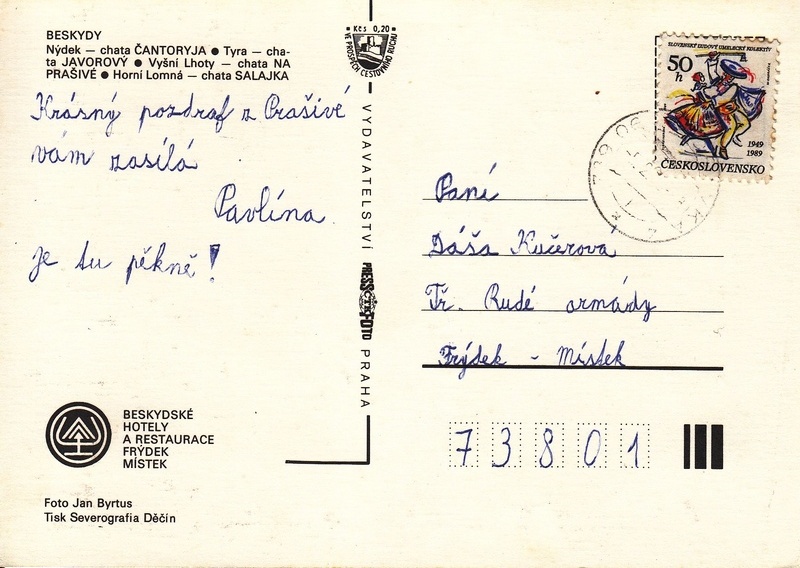 BESKYDY
Nýdek — chata ČANTORYJA ● Tyra — cha-
ta JAVOROVÝ ● Vyšní Lhoty — chata NA
PRAŠIVÉ ● Horní Lomná — chata SALAJKA
Krásný pozdraf z Prašivé
vám zasílá
Pavlína
je tu pěkně!
BESKYDSKÉ
HOTELY
A RESTAURACE
FRÝDEK
MÍSTEK
Foto Jan Byrtus
Tisk Severografia Děčín
Kčs 0,20
VE PROSPĚCH CESTOVNÍHO RUCHU
VYDAVATELSTVÍ
PRESSFOTO
ČTK
PRAHA
SLOVENSKÝ ĽUDOVÝ UMELECKÝ KOLEKTÍV
50
h
1949
1989
ČESKOSLOVENSKO
739 06
Paní
Dáša Kučerová
Tř. Rudé armády
Frýdek - Místek
73801